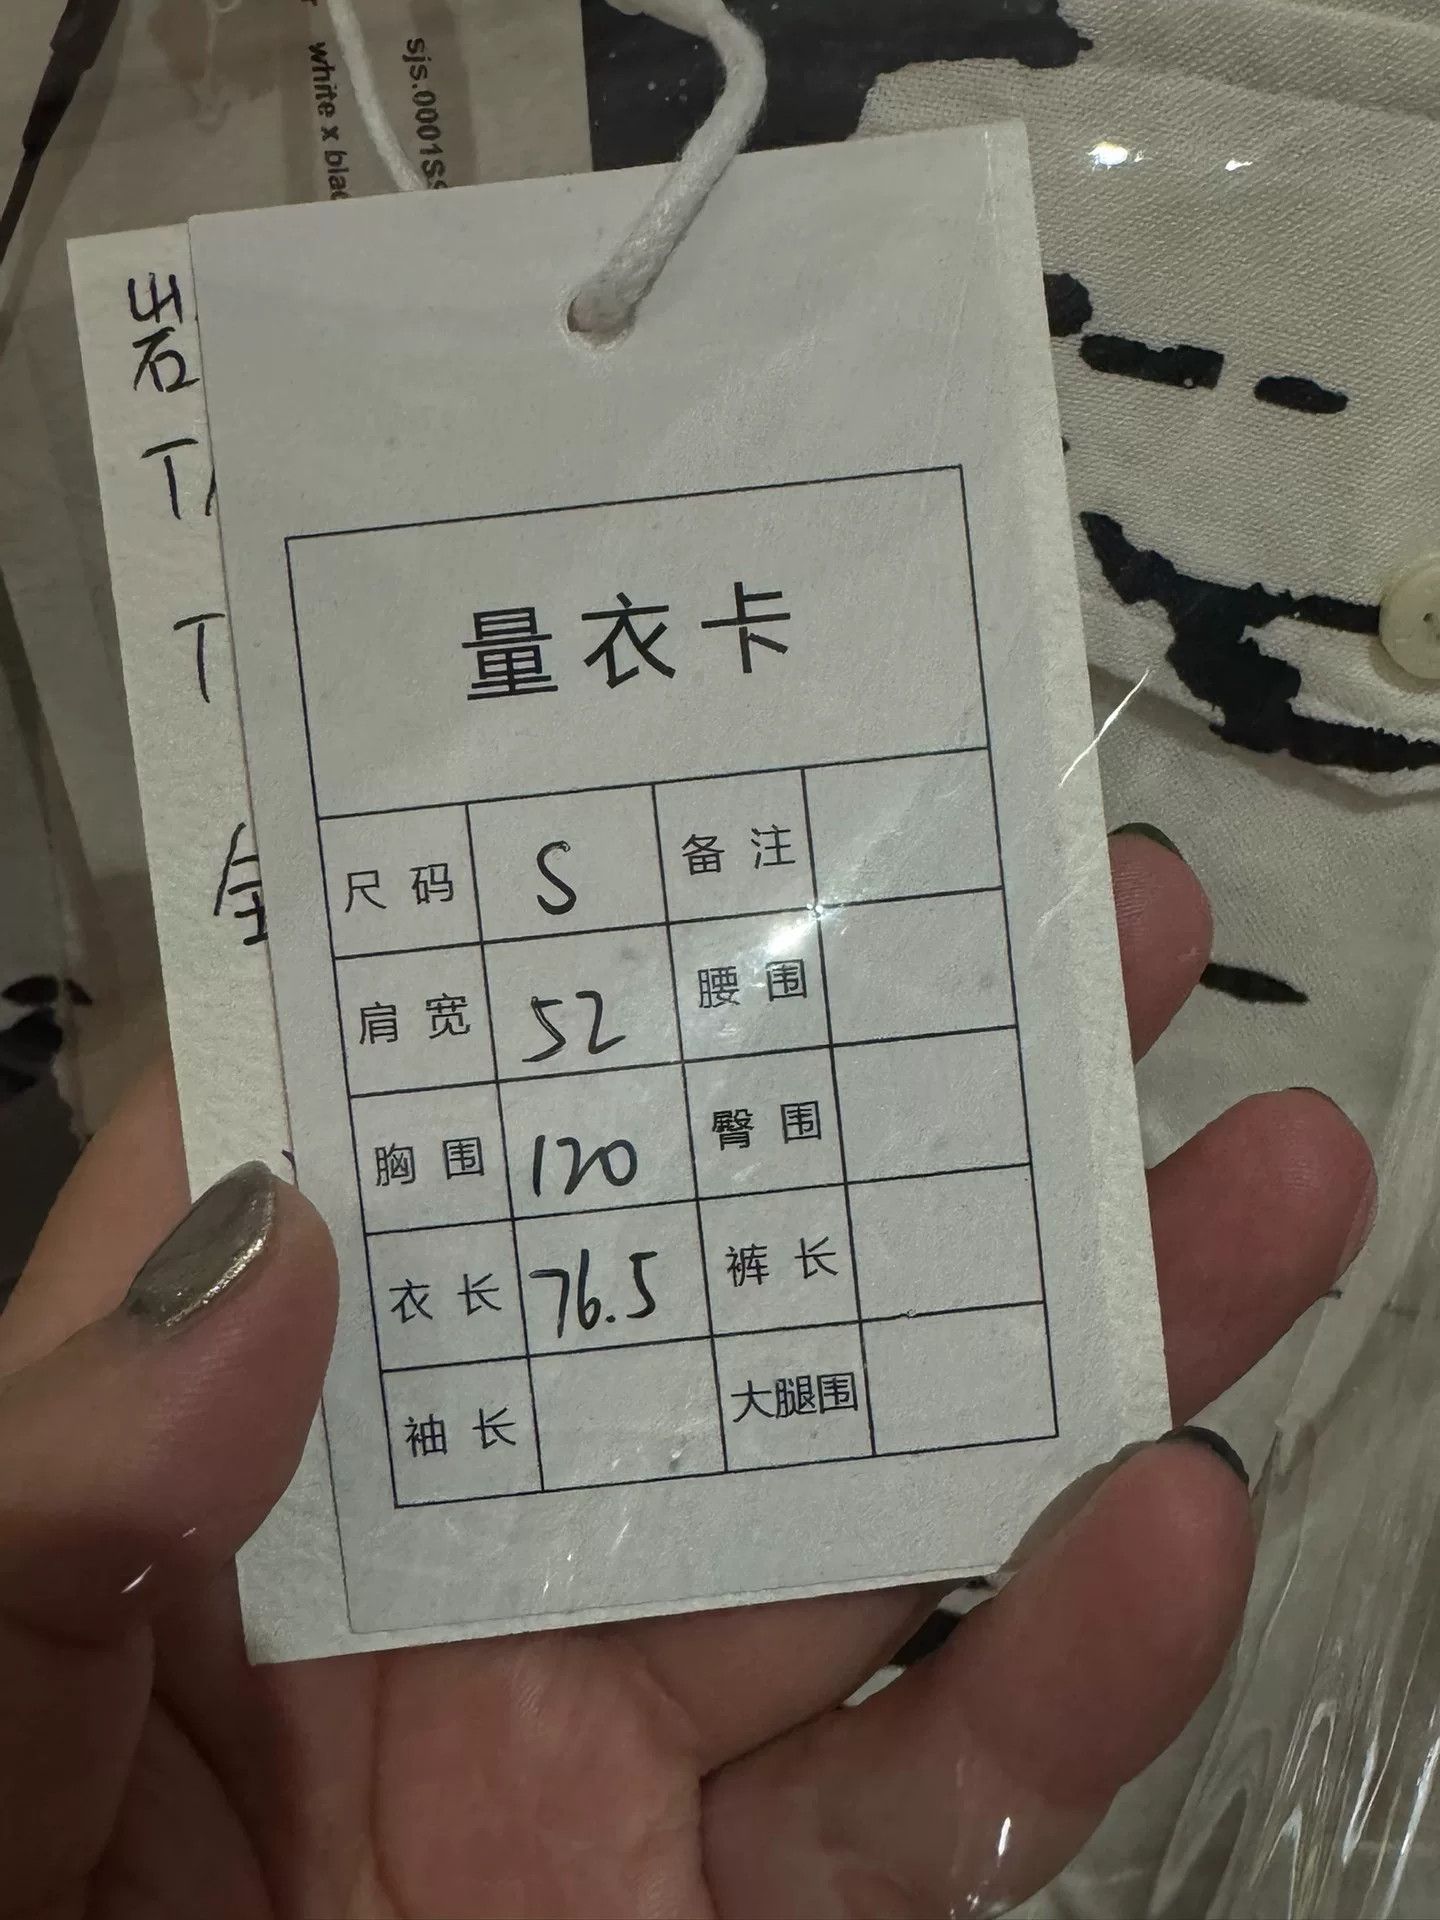 sjs.0001S
white x bla
岩
T
T
量衣卡
尺码 S 备注
肩宽 52 腰围
胸围 120 臀围
衣长 76.5 裤长
袖长 大腿围